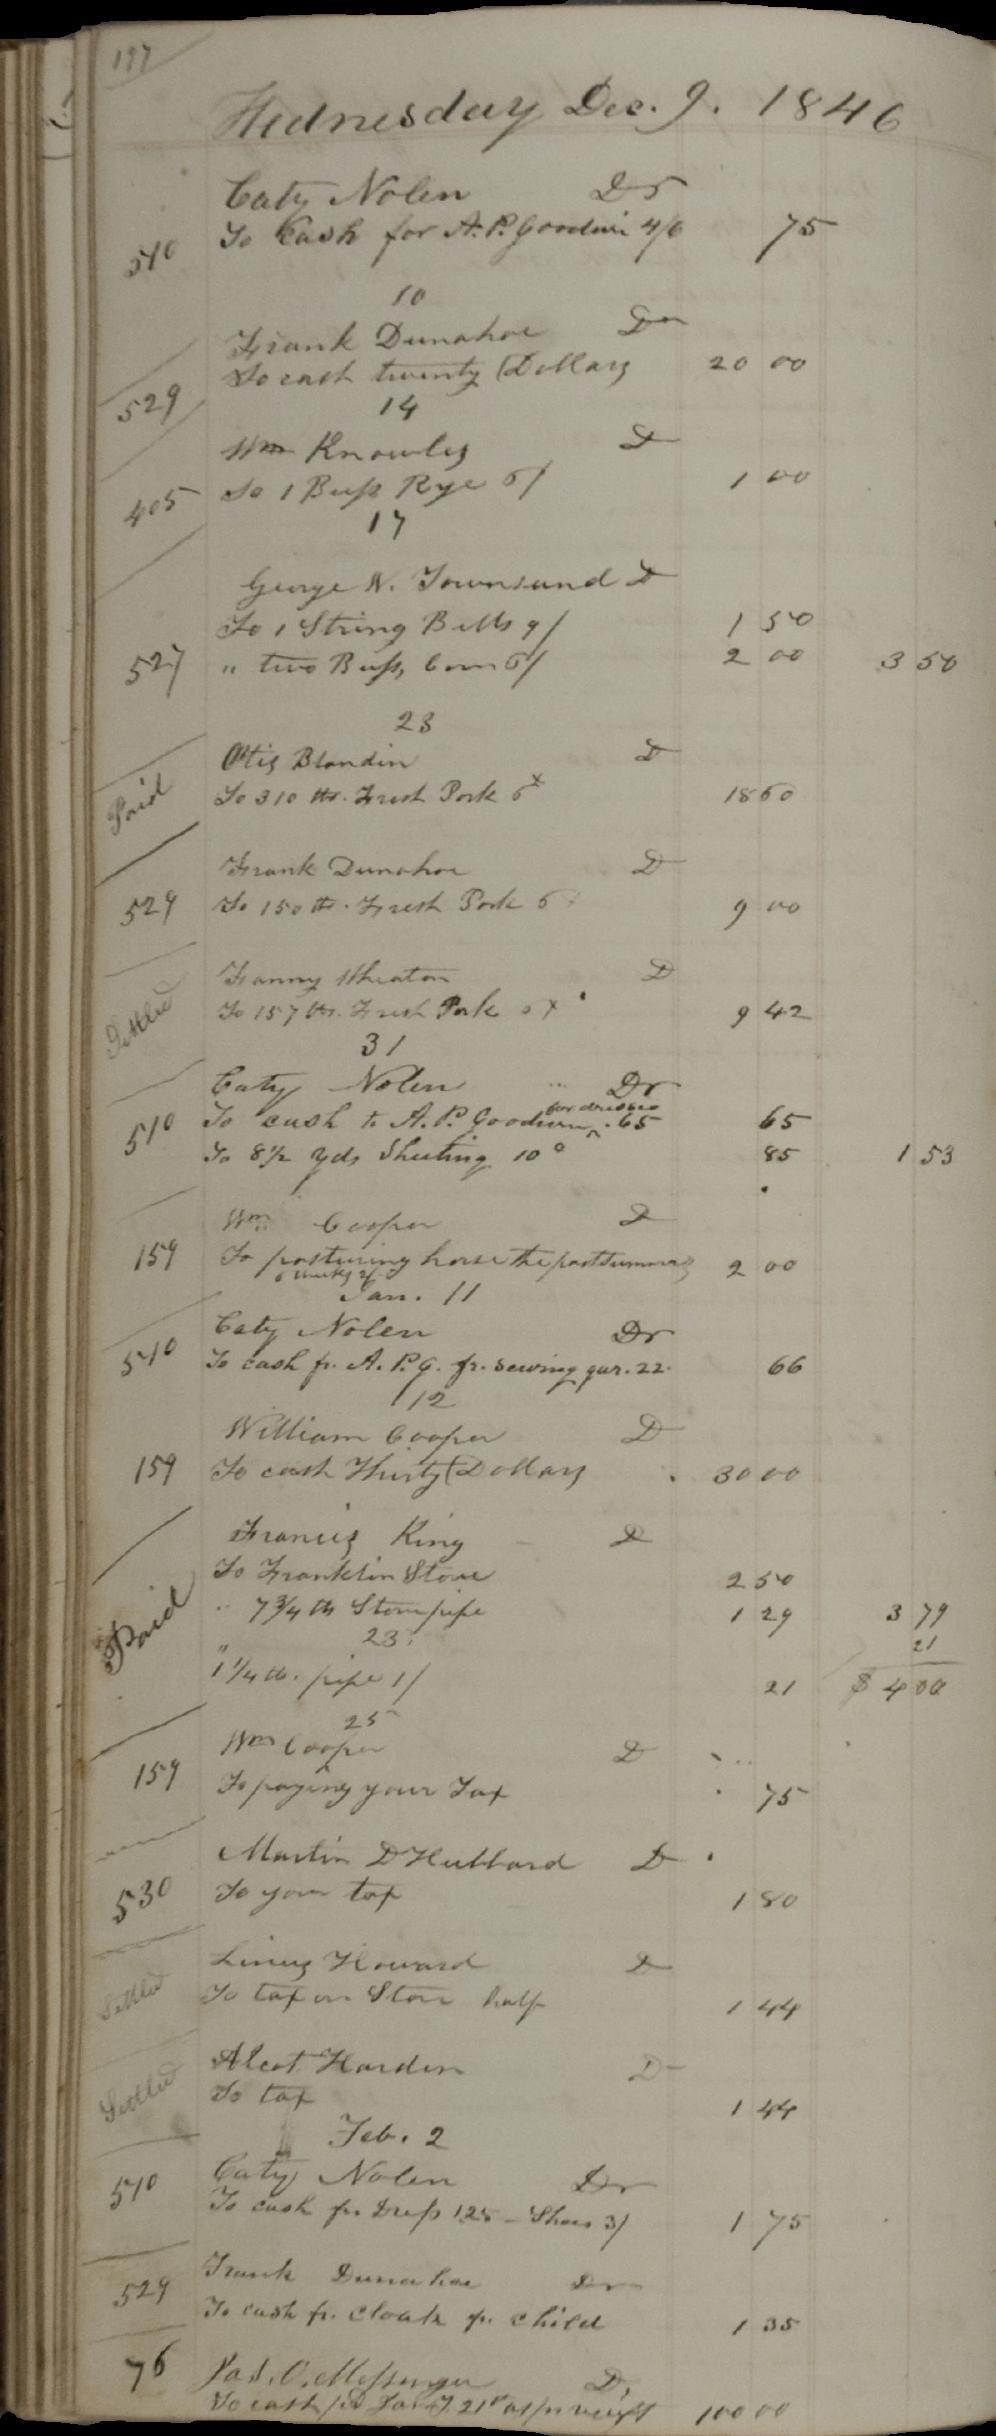 197
Wednesday Dec. 9. 1846
Caty Nolen Dr
510 To Cash for A. P. Goodwin 4/6 75
10
Frank Dunahoe Dr
529 To cash twenty Dollars 20 00
14
Wm Knowles D
405 To 1 Buss Rye 6/ 1 00
17
George W. Townsend D
To 1 String Bells 9/ 1 50
527 " two Buss, Corn 6/ 2 00 3 50
23
Otis Blandin D
Paid To 310 lbs. Fresh Pork 6 18 60
Frank Dunahoe D
529 To 150 lb. Fresh Pork 6 9 00
Fanny Wheaton D
Settled To 157 lbs. Fresh Pork 9 42
31
Caty Nolen Dr
for dresses
510 To cash to A. P. Goodwin ^ .65 65
To 8 1/2 yds Sheeting 10 c 85 1 53
Wm Cooper D
159 To pasturing horse the past Summer 2 00
6 weeks 2/
Jan. 11
Caty Nolen Dr
510 To cash fr. A. P. G. fr. sewing gar. 22. 66
12
William Cooper D
159 To cash Thirty Dollars 30 00
Francis King D
To Franklin Stove 2 50
Paid " 7 3/4 lb Stovepipe 1 29 3 79
23 21
" 1 1/4 lb. pipe 1/ 21 $ 4 00
25
Wm Cooper D
159 To paying your Tax 75
Martin D Hubbard D
530 To your tax 1 80
Linus Howard D
Settled To tax on Store half 1 44
Alcot Harden D
Settled To tax 1 44
Feb. 2
Caty Nolen Dr
510 To cash fr. Dress 125 - Shoes 3/ 1 75
Frank Dunahoe Dr
529 To cash fr. cloak fr. child 1 35
76 Jas. O. Messenger D,
To cash pd 21st as pr receipt 100 00